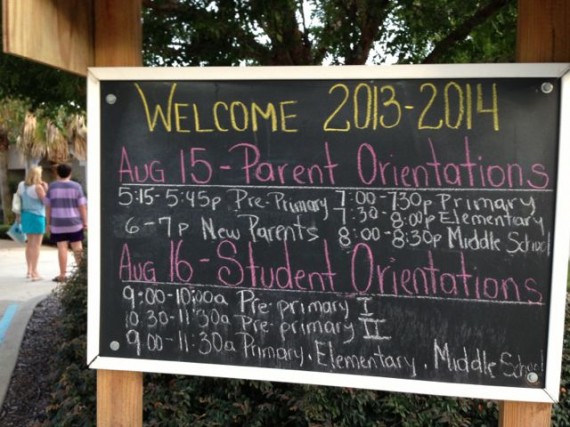 WELCOME 2013-2014
Aug 15-Parent Orientations
5:15-5:45p Pre-Primary
6-7p New Parents
7:00-7:30p Primary
7:30-8:00p Elementary
8:00-8:30p Middle School
Aug 16-Student Orientations
9:00-10:00a Pre-primary I
10:30-11:30a Pre-primary II
9:00-11:30a Primary, Elementary, Middle School